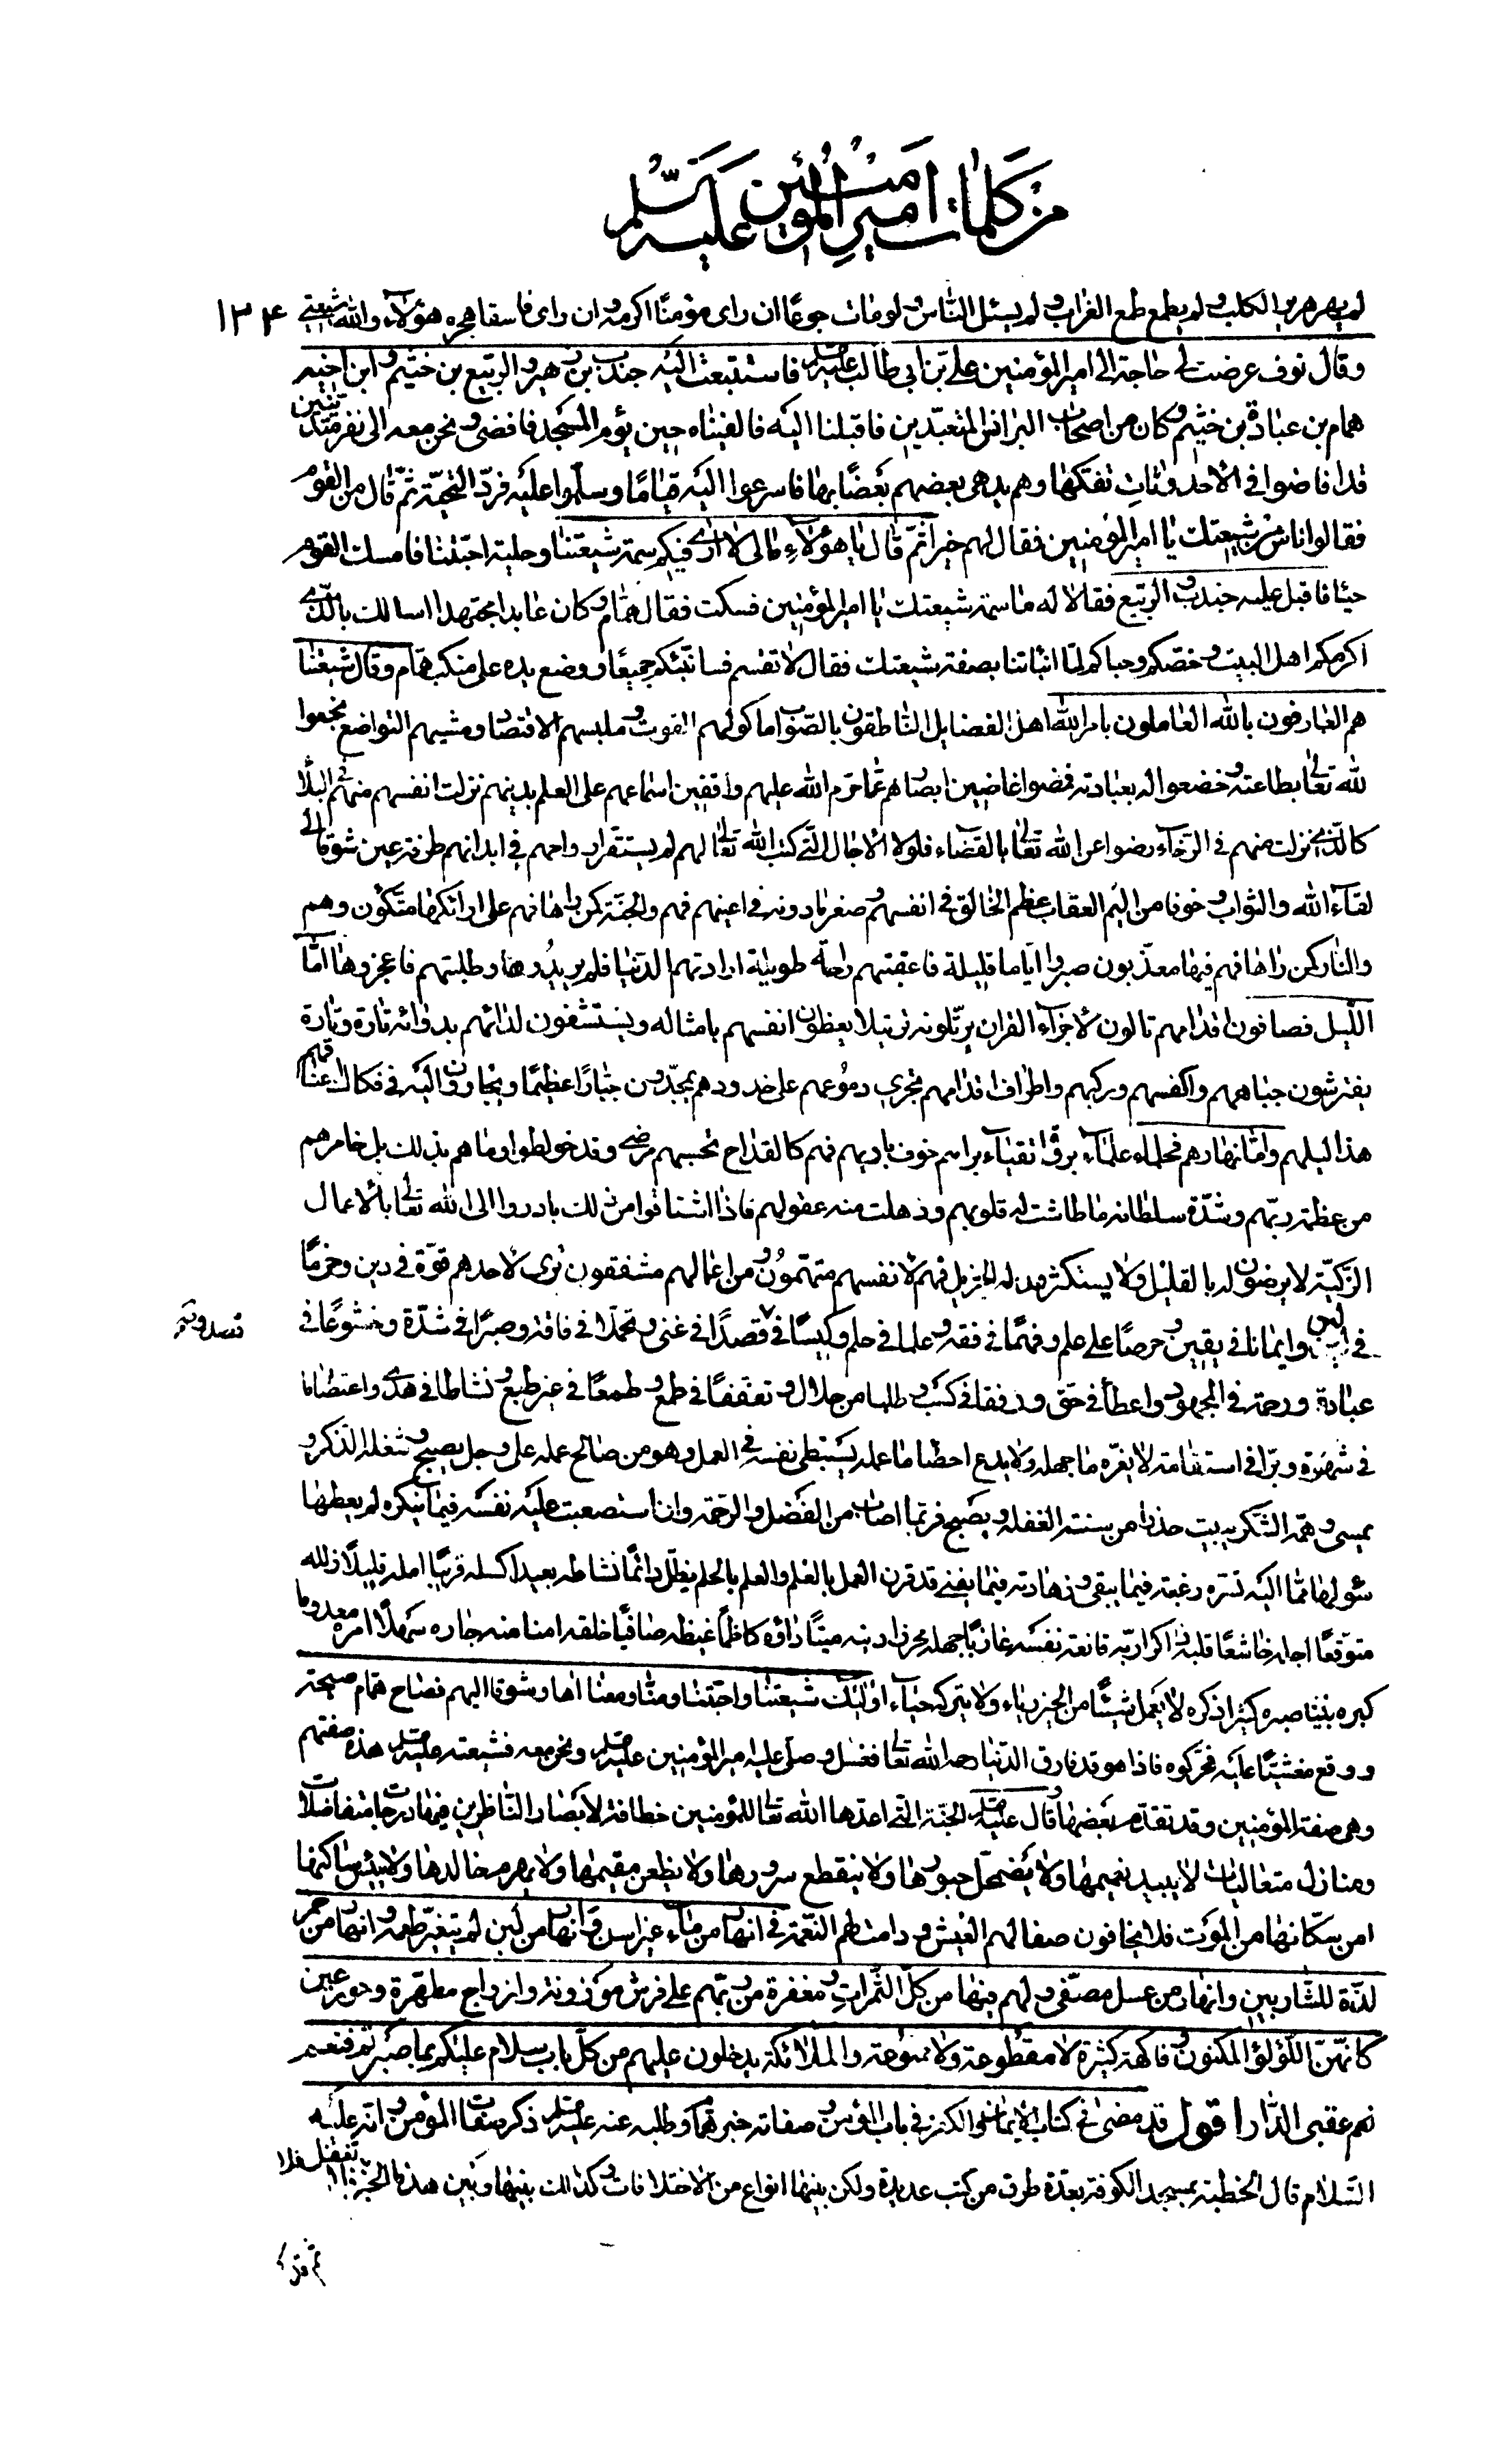 من كلمات امير المؤمنين عليه السلم
لم يهر هرير الكلب و لم يطمع طمع الغراب و لم يسئل الناس و لو مات جوعًا ان راى مؤمنًا اكرمه و ان راى فاسقا هجره هؤلاء والله شيعتي ١٣٤
وقال نوف عرضت لى حاجة الى امير المؤمنين على بن ابى طالب عليه السلم فاستتبعت اليه جندب بن زهير و الربيع بن خثيم و ابن اخيه
همام بن عبادة بن خثيم و كان من اصحاب البرانس المتعبدين فاقبلنا اليه فالفيناه حين يؤم المسجد فافضى و نحن معه الى نفر متدينين
قد افاضوا فى الاحدوثات تفكها وهم يلهى بعضهم بعضًا بها فاسرعوا اليه قيامًا وسلموا عليه فرد التحية ثم قال من القوم
فقالوا اناس من شيعتك يا امير المؤمنين فقال لهم خيرا ثم قال يا هؤلاء مالى لا ارى فيكم سمة شيعتنا و حلية احبتنا فامسك القوم
حياء فاقبل عليه جندب و الربيع فقالا له ما سمة شيعتك يا امير المؤمنين فسكت فقال همام و كان عابدا مجتهدا اسالك بالذى
اكرمكم اهل البيت و خصكم و حباكم لما انباتنا بصفة شيعتك فقال لا تقسم فسانبئكم جميعًا و وضع يده على منكب همام و قال شيعتنا
هم العارفون بالله العاملون بامر الله اهل الفضايل الناطقون بالصواب ماكولهم القوت و ملبسهم الاقتصاد و مشيهم التواضع بخعوا
لله تعالى بطاعته و خضعوا له بعبادته فمضوا غاضين ابصارهم عما حرم الله عليهم واقفين اسماعهم على العلم بدينهم نزلت انفسهم منهم فى البلاء
كالذى نزلت منهم فى الرخاء رضوا عن الله تعالى بالقضاء فلولا الاجال التى كتب الله تعالى لهم لم يستقر ارواحهم فى ابدانهم طرفة عين شوقا الى
لقاء الله والثواب و خوفا من اليم العقاب عظم الخالق فى انفسهم و صغر ما دونه فى اعينهم فهم والجنة كمن راها فهم على ارائكها متكؤن وهم
والنار كمن راها فهم فيها معذبون صبروا اياما قليلة فاعقبتهم راحة طويلة ارادتهم الدنيا فلم يريدوها و طلبتهم فاعجزوها اما
الليل فصافون اقدامهم تالون لاجزاء القران يرتلونه ترتيلا يعظون انفسهم بامثاله و يستشفون لدائهم بدوائه تارة و تارة
يفترشون جباههم واكفهم وركبهم واطراف اقدامهم تجرى دموعهم على خدودهم يمجدون جبارًا عظيمًا و يجارون اليه فى فكاك رقابهم
هذا ليلهم واما نهارهم فحلماء علماء بررة اتقياء براهم خوف باريهم فهم كالقداح تحسبهم مرضى و قد خولطوا و ما هم بذلك بل خامرهم
من عظمة ربهم و شدة سلطانه ما طاشت له قلوبهم و ذهلت منه عقولهم فاذا اشتاقوا من ذلك بادروا الى الله تعالى بالاعمال
الزكية لا يرضون له بالقليل و لا يستكثرون له الجزيل فهم لانفسهم متهمون و من اعمالهم مشفقون ترى لاحدهم قوة فى دين و حزمًا
فى لين وايمانا فى يقين و حرصًا على علم و فهمًا فى فقه و علما فى حلم و كيسًا فى قصدًا فى غنى و تجملا فى فاقة و صبرًا فى شدة و خشوعًا فى
عبادة و رحمة فى المجهود واعطاء فى حق و رفقا فى كسب و طلبا من حلال و تعففًا فى طمع و طمعًا فى غير طبع و نشاطا فى هدى واعتصاما
فى شهوة وبرا فى استقامة لا يغره ما جهله ولا يدع احصاء ما عمله يستبطى نفسه فى العمل وهو من صالح عمله على وجل يصبح و شغله الذكر و
يمسى و همه الشكر يبيت حذرا من سنة الغفلة و يصبح فرحا بما اصاب من الفضل والرحمة وان استصعبت عليه نفسه فيما تكره لم يعطها
سؤلها مما اليه تسره رغبته فيما يبقى و زهادته فيما يفنى قد قرن العمل بالعلم والعلم بالحلم يظل دائمًا نشاطه بعيدا كسله قريبًا امله قليلًا زلله
متوقعًا اجله خاشعًا قلبه ذاكرا ربه قانعة نفسه عازبًا جهله محرزا دينه ميتًا داؤه كاظمًا غيظه صافيًا خلقه امنا منه جاره سهلًا امره معدوما
كبره بينا صبره كثيرا ذكره لا يعمل شيئًا من الخير رياء ولا يتركه حياء اولئك شيعتنا واحبتنا ومنا ومعنا اها و شوقا اليهم فصاح همام صيحة
و وقع مغشيًا عليه فحركوه فاذا هو قد فارق الدنيا رحمه الله تعالى فغسل و صلى عليه امير المؤمنين عليه السلم و نحن معه فشيعته عليه السلم هذه صفتهم
وهى صفة المؤمنين و قد تقدم بعضها و قال عليه السلم الجنة التى اعدها الله تعالى للمؤمنين خطافة لابصار الناظرين فيها درجات متفاضلات
ومنازل متعاليات لا يبيد نعيمها ولا يضمحل حبورها ولا ينقطع سرورها ولا يظعن مقيمها ولا يهرم خالدها ولا يبئس ساكنها
امن سكانها من الموت فلا يخافون صفا لهم العيش و دامت لهم النعمة فى انهار من ماء غير اسن و انهار من لبن لم يتغير طعمه و انهار من خمر
لذة للشاربين وانهار من عسل مصفى و لهم فيها من كل الثمرات و مغفرة من ربهم على فرش موزونة و ازواج مطهرة و حور عين
كانهن اللؤلؤ المكنون و فاكهة كثيرة لا مقطوعة ولا ممنوعة والملائكة يدخلون عليهم من كل باب سلام عليكم بما صبرتم فنعم
عقبى الدار اقول قد مضى فى كتاب الايمان والكفر فى باب المؤمن و صفاته خبر همام و طلبه عنه عليه السلم ذكر صفات المؤمن و انه عليه
السلام قال الخطبة بمسجد الكوفة بعدة طرق من كتب عديدة ولكن بينها انواع من الاختلافات و كذلك بينها و بين هذا الخبر